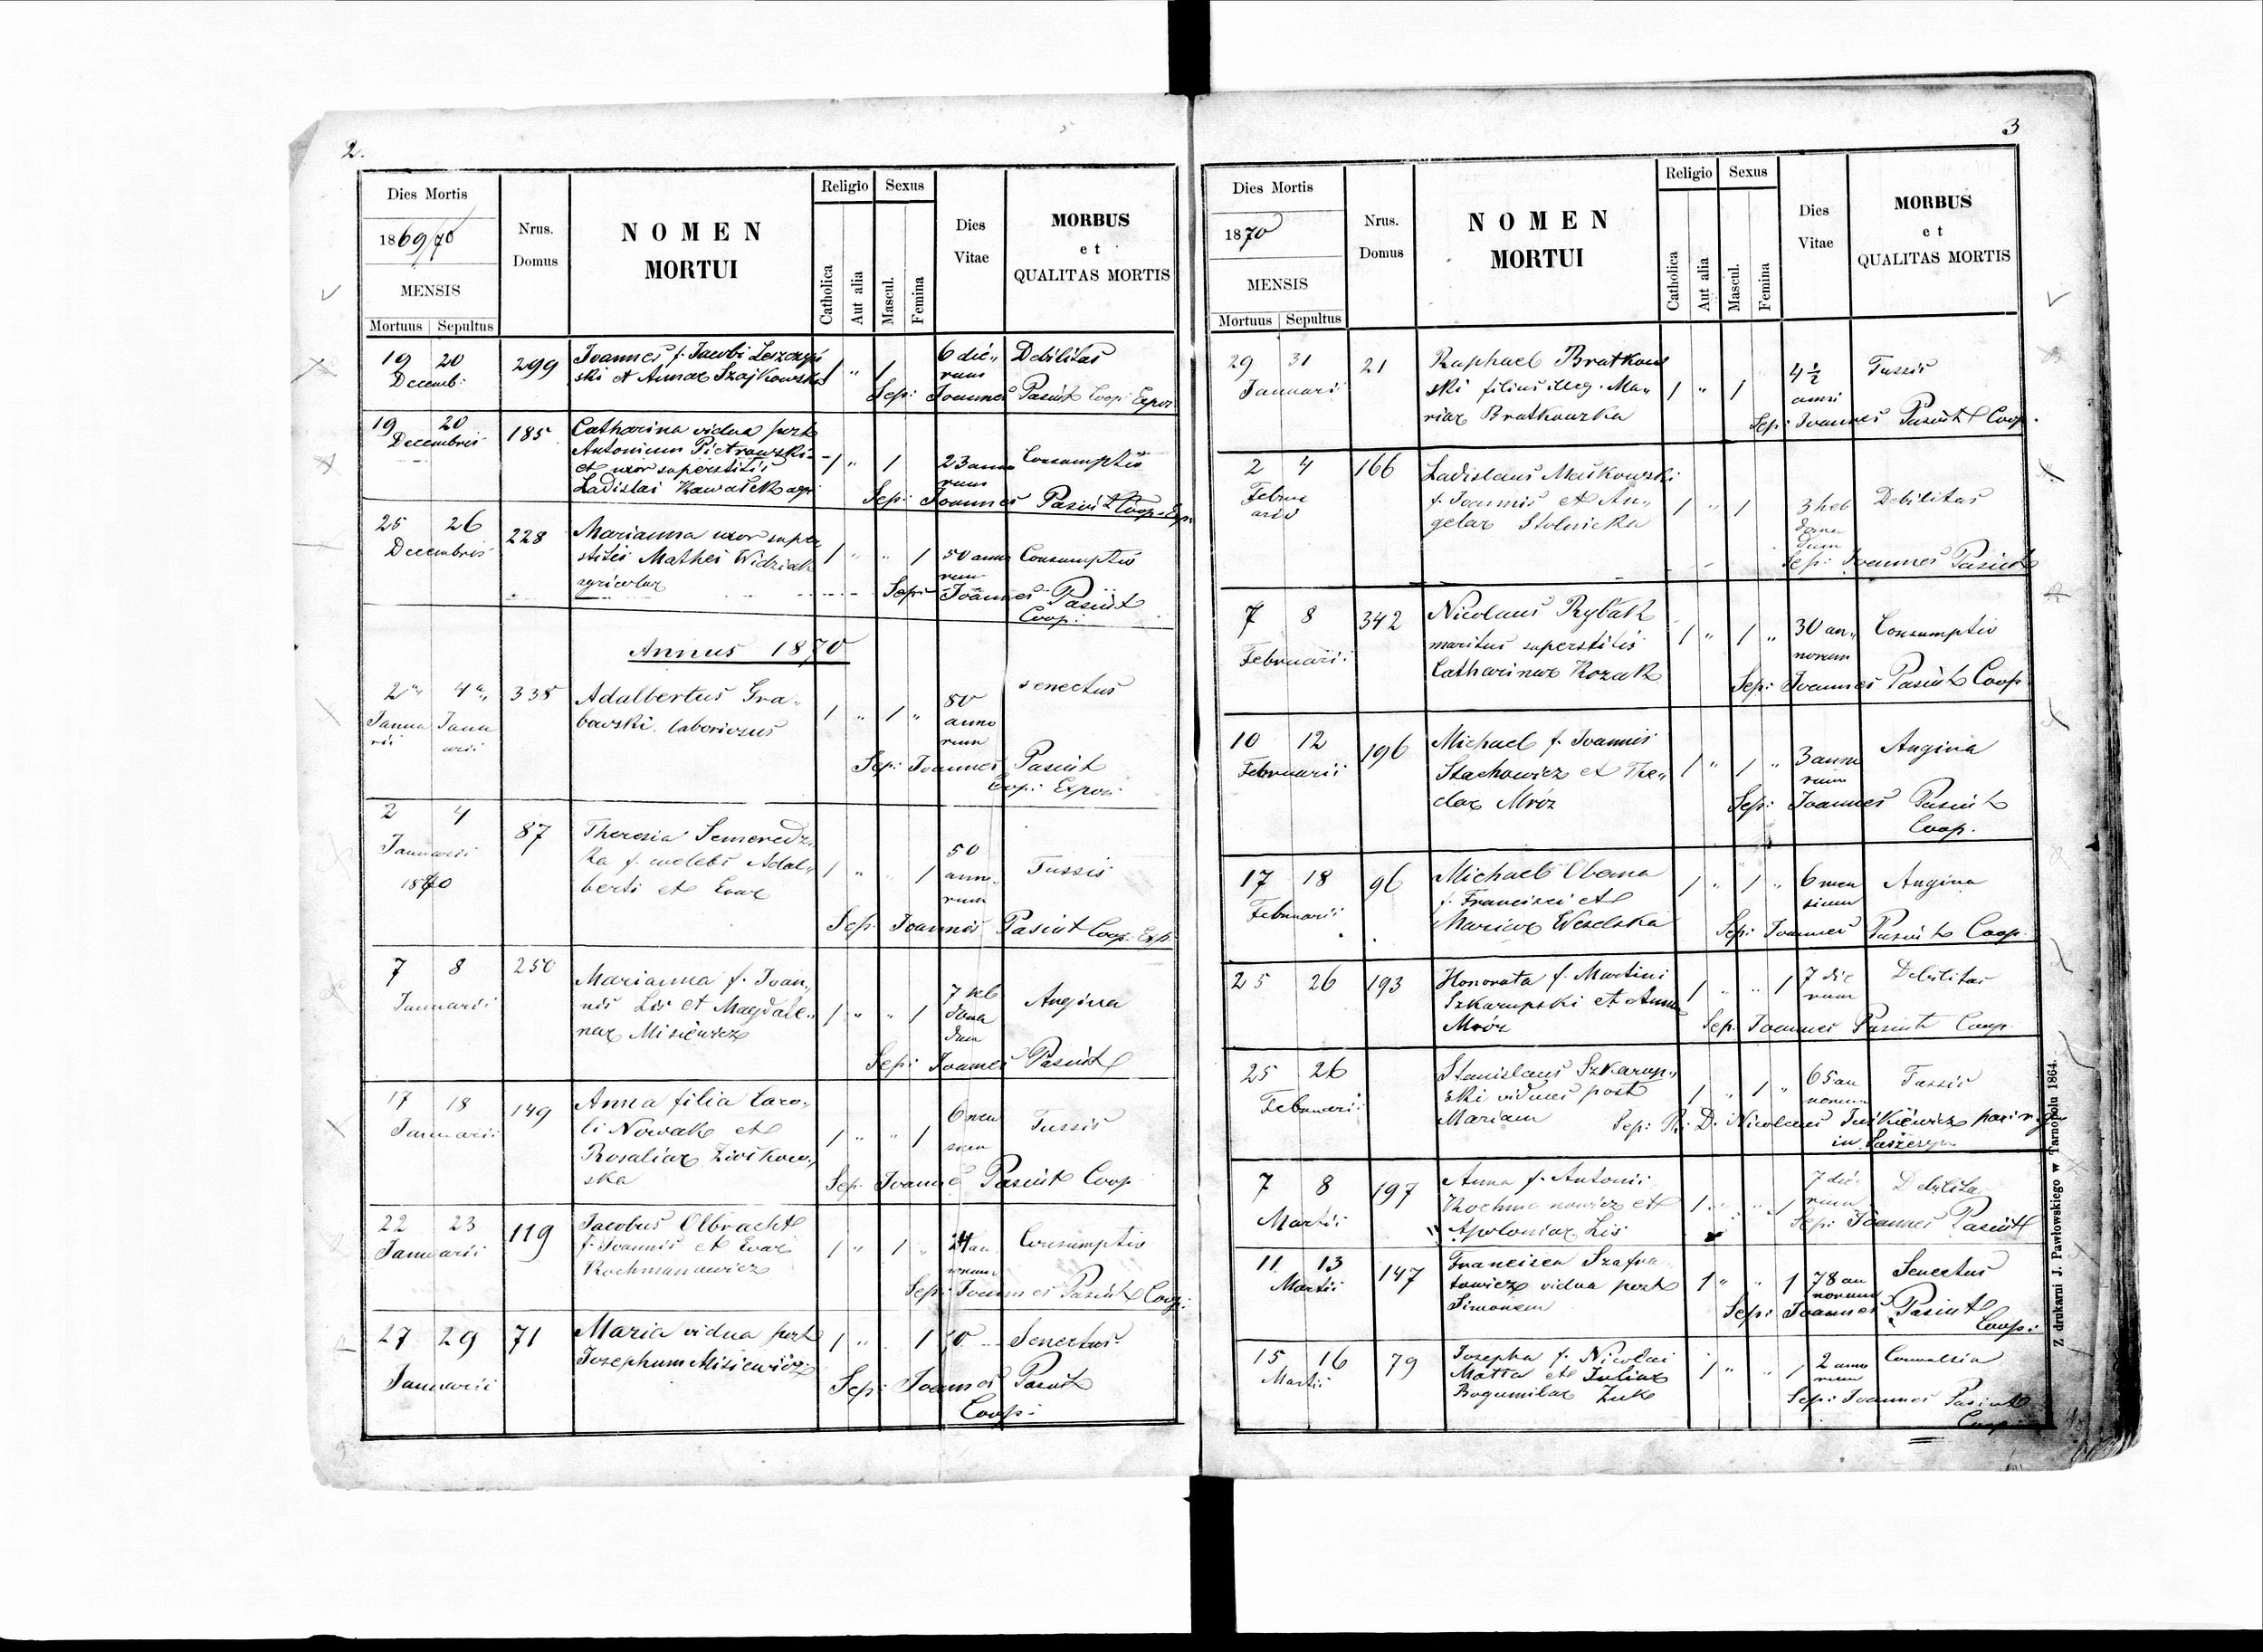 2.
Dies Mortis
1869/70
MENSIS
Mortuus Sepultus
Nrus.
Domus
NOMEN
MORTUI
Religio Sexus
Catholica
Aut alia
Mascul.
Femina
Dies
Vitae
MORBUS
et
QUALITAS MORTIS
19 20 299 Joannes f. Jacobi Leszczyń 1 " 1 6 die„ Debilitas
Decemb: ski et Annae Szajkowska rum
Sep: Joannes Pasiut Coop: Expos
19 20 185 Catharina vidua post
Decembris Antonium Pietrowski
et uxor superstitis 1 " 1 23 anno Consumptio
Ladislai Kawałek agri rum
Sep: Joannes Pasiut Coop. Exp.
25 26 228 Marianna uxor super
Decembris stitis Mathei Widziak 1 " " 1 50 anno Consumptio
agricolae rum
Sep: Joannes Pasiut
Coop:
Annus 1870
2 4 338 Adalbertus Gra„ 1 " 1 " 50 senectus
Janua Janu bowski laboriosus anno
rii arii rum
Sep: Joannes Pasiut
Coop: Expos:
2 4 87 Theresia Semeredz„ 50
Januarii ka f. Adal„ 1 " 1 anno Tussis
1870 berti et Evae rum
Sep: Joannes Pasiut Coop. Exp.
7 8 250 Marianna f. Joan„ 7 heb Angina
Januarii nis Lis et Magdale„ 1 " " 1 doma
nae Misiewicz dum
Sep: Joannes Pasiut
17 18 149 Anna filia Caro„ 6 men Tussis
Januarii li Nowak et 1 " " 1 sium
Rosaliae Ziółkow„
ska
Sep: Joannes Pasiut Coop
22 23 119 Jacobus Olbracht 24 an Consumptio
Januarii f. Joannis et Evae 1 " 1 " norum
Rochmanowicz
Sep: Joannes Pasiut Coop:
27 29 71 Maria vidua post 1 " 1 Senectus
Januarii Josephum Misiewicz
Sep: Joannes Pasiut
Coop:
3
Dies Mortis
1870
MENSIS
Mortuus Sepultus
Nrus.
Domus
NOMEN
MORTUI
Religio Sexus
Catholica
Aut alia
Mascul.
Femina
Dies
Vitae
MORBUS
et
QUALITAS MORTIS
29 31 21 Raphael Bratkow 4 ½ Tussis
Januarii ski filius illeg. Ma„ 1 " 1 anni
riae Bratkowska
Sep: Joannes Pasiut Coop.
2 4 166 Ladislaus Maskowski
Febru f. Joannis et An„ 1 " 1 3 heb Debilitas
arii gelae Stolnicka doma
dum
Sep: Joannes Pasiut
7 8 342 Nicolaus Rybak
Februarii maritus superstitis 1 " 1 " 30 an„ Consumptio
Catharinae Kozak norum
Sep: Joannes Pasiut Coop
10 12 196 Michael f. Joannis Angina
Februarii Stachowicz et The„ 1 " 1 " 3 anno
clae Mróz rum
Sep: Joannes Pasiut
Coop.
17 18 96 Michael Obema 1 " 1 " 6 men Angina
Februarii f. Francisci et sium
Mariae Weselska
Sep: Joannes Pasiut Coop.
25 26 193 Honorata f. Martini 1 " " 1 7 die Debilitas
Szkarupski et Annae rum
Mróz
Sep. Joannes Pasiut Coop.
25 26 Stanislaus Szkarup„ 65 an Tussis
Februarii ski viduus post 1 " 1 " norum
Mariam Sep: R. D. Nicolaus
in
7 8 197 Anna f. Antonii 7 die Debilitas
Martii Rochmanowicz et 1 " " 1 rum
Apoloniae Lis Sep: Joannes Pasiut
11 13 147 Francisca Szafra Senectus
Martii towicz vidua post 1 " " 1 78 an
Simonem norum
Sep: Joannes Pasiut
Coop:
15 16 79 Josepha f. Nicolai 1 " " 1 2 anno Convulsia
Martii Motta et Juliae rum
Bogumilae Zuk
Sep: Joannes Pasiut
Coop:
Z drukarni J. Pawłowskiego w Tarnopolu 1864.